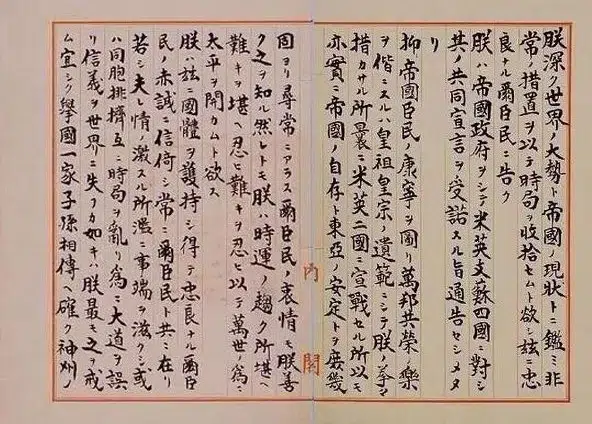 朕深ク世界ノ大勢ト帝國ノ現状トニ鑑ミ非
常ノ措置ヲ以テ時局ヲ收拾セムト欲シ茲ニ忠
良ナル爾臣民ニ告ク
朕ハ帝國政府ヲシテ米英支蘇四國ニ對シ
其ノ共同宣言ヲ受諾スル旨通告セシメタ
リ
抑〻帝國臣民ノ康寧ヲ圖リ萬邦共榮ノ樂
ヲ偕ニスルハ皇祖皇宗ノ遺範ニシテ朕ノ拳〻
措カサル所曩ニ米英二國ニ宣戰セル所以モ
亦實ニ帝國ノ自存ト東亞ノ安定トヲ庶幾
内閣
固ヨリ尋常ニアラス爾臣民ノ衷情モ朕善
ク之ヲ知ル然レトモ朕ハ時運ノ趨ク所堪ヘ
難キヲ堪ヘ忍ヒ難キヲ忍ヒ以テ萬世ノ爲ニ
太平ヲ開カムト欲ス
朕ハ茲ニ國體ヲ護持シ得テ忠良ナル爾臣
民ノ赤誠ニ信倚シ常ニ爾臣民ト共ニ在リ
若シ夫レ情ノ激スル所濫ニ事端ヲ滋クシ或
ハ同胞排擠互ニ時局ヲ亂リ爲ニ大道ヲ誤
リ信義ヲ世界ニ失フカ如キハ朕最モ之ヲ戒
ム宜シク擧國一家子孫相傳ヘ確ク神州ノ